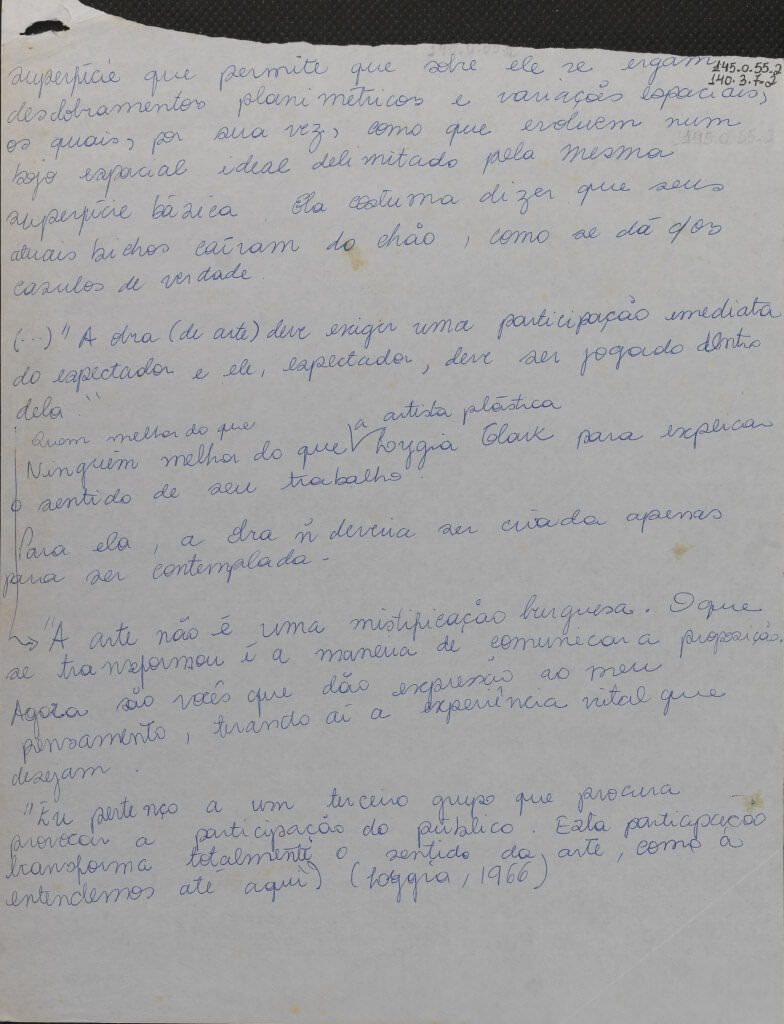 145.0.55.2
140.3.7-2
superfície que permite que sobre ele se ergam
desdobramentos planimétricos e variações espaciais,
os quais, por sua vez, como que evoluem num
bojo espacial ideal delimitado pela mesma
superfície básica. Ela costuma dizer que seus
atuais bichos caíram do chão, como se dá c/os
casulos de verdade.
(...) "A obra (de arte) deve exigir uma participação imediata
do espectador e ele, espectador, deve ser jogado dentro
dela."
Quem melhor do que
a artista plástica
Ninguém melhor do que Lygia Clark para explicar
o sentido de seu trabalho.
Para ela, a obra ñ deveria ser criada apenas
para ser contemplada.
→ "A arte não é uma mistificação burguesa. O que
se transformou é a maneira de comunicar a proposição.
Agora são vocês que dão expressão ao meu
pensamento, tirando aí a experiência vital que
desejam.
"Eu pertenço a um terceiro grupo que procura
provocar a participação do público. Esta participação
transforma totalmente o sentido da arte, como a
entendemos até aqui) (Lyggia, 1966)